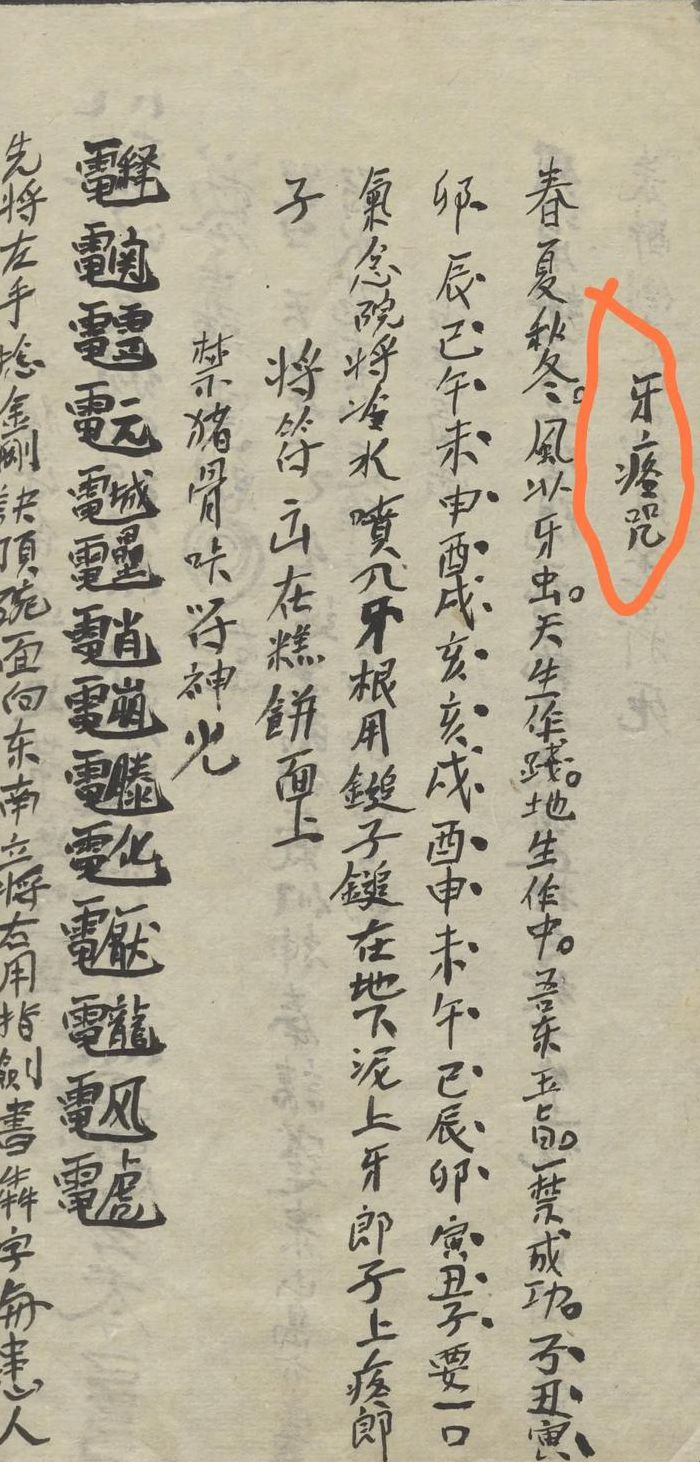 牙疼咒
春夏秋冬。風以牙虫。天生作踐。地生作中。吾奉玉旨。一禁成功。子丑寅
卯辰巳午未申酉戌亥亥戌酉申未午巳辰卯寅丑子要一口
氣念院將冷水噴入牙根用鎚子鎚在地下泥上牙郎子上疼郎
子 將符立在糕餅面上
禁猪骨咔符神光
先将左手捻金剛訣頂碗面向东南立将右用指劍書犇字每患人